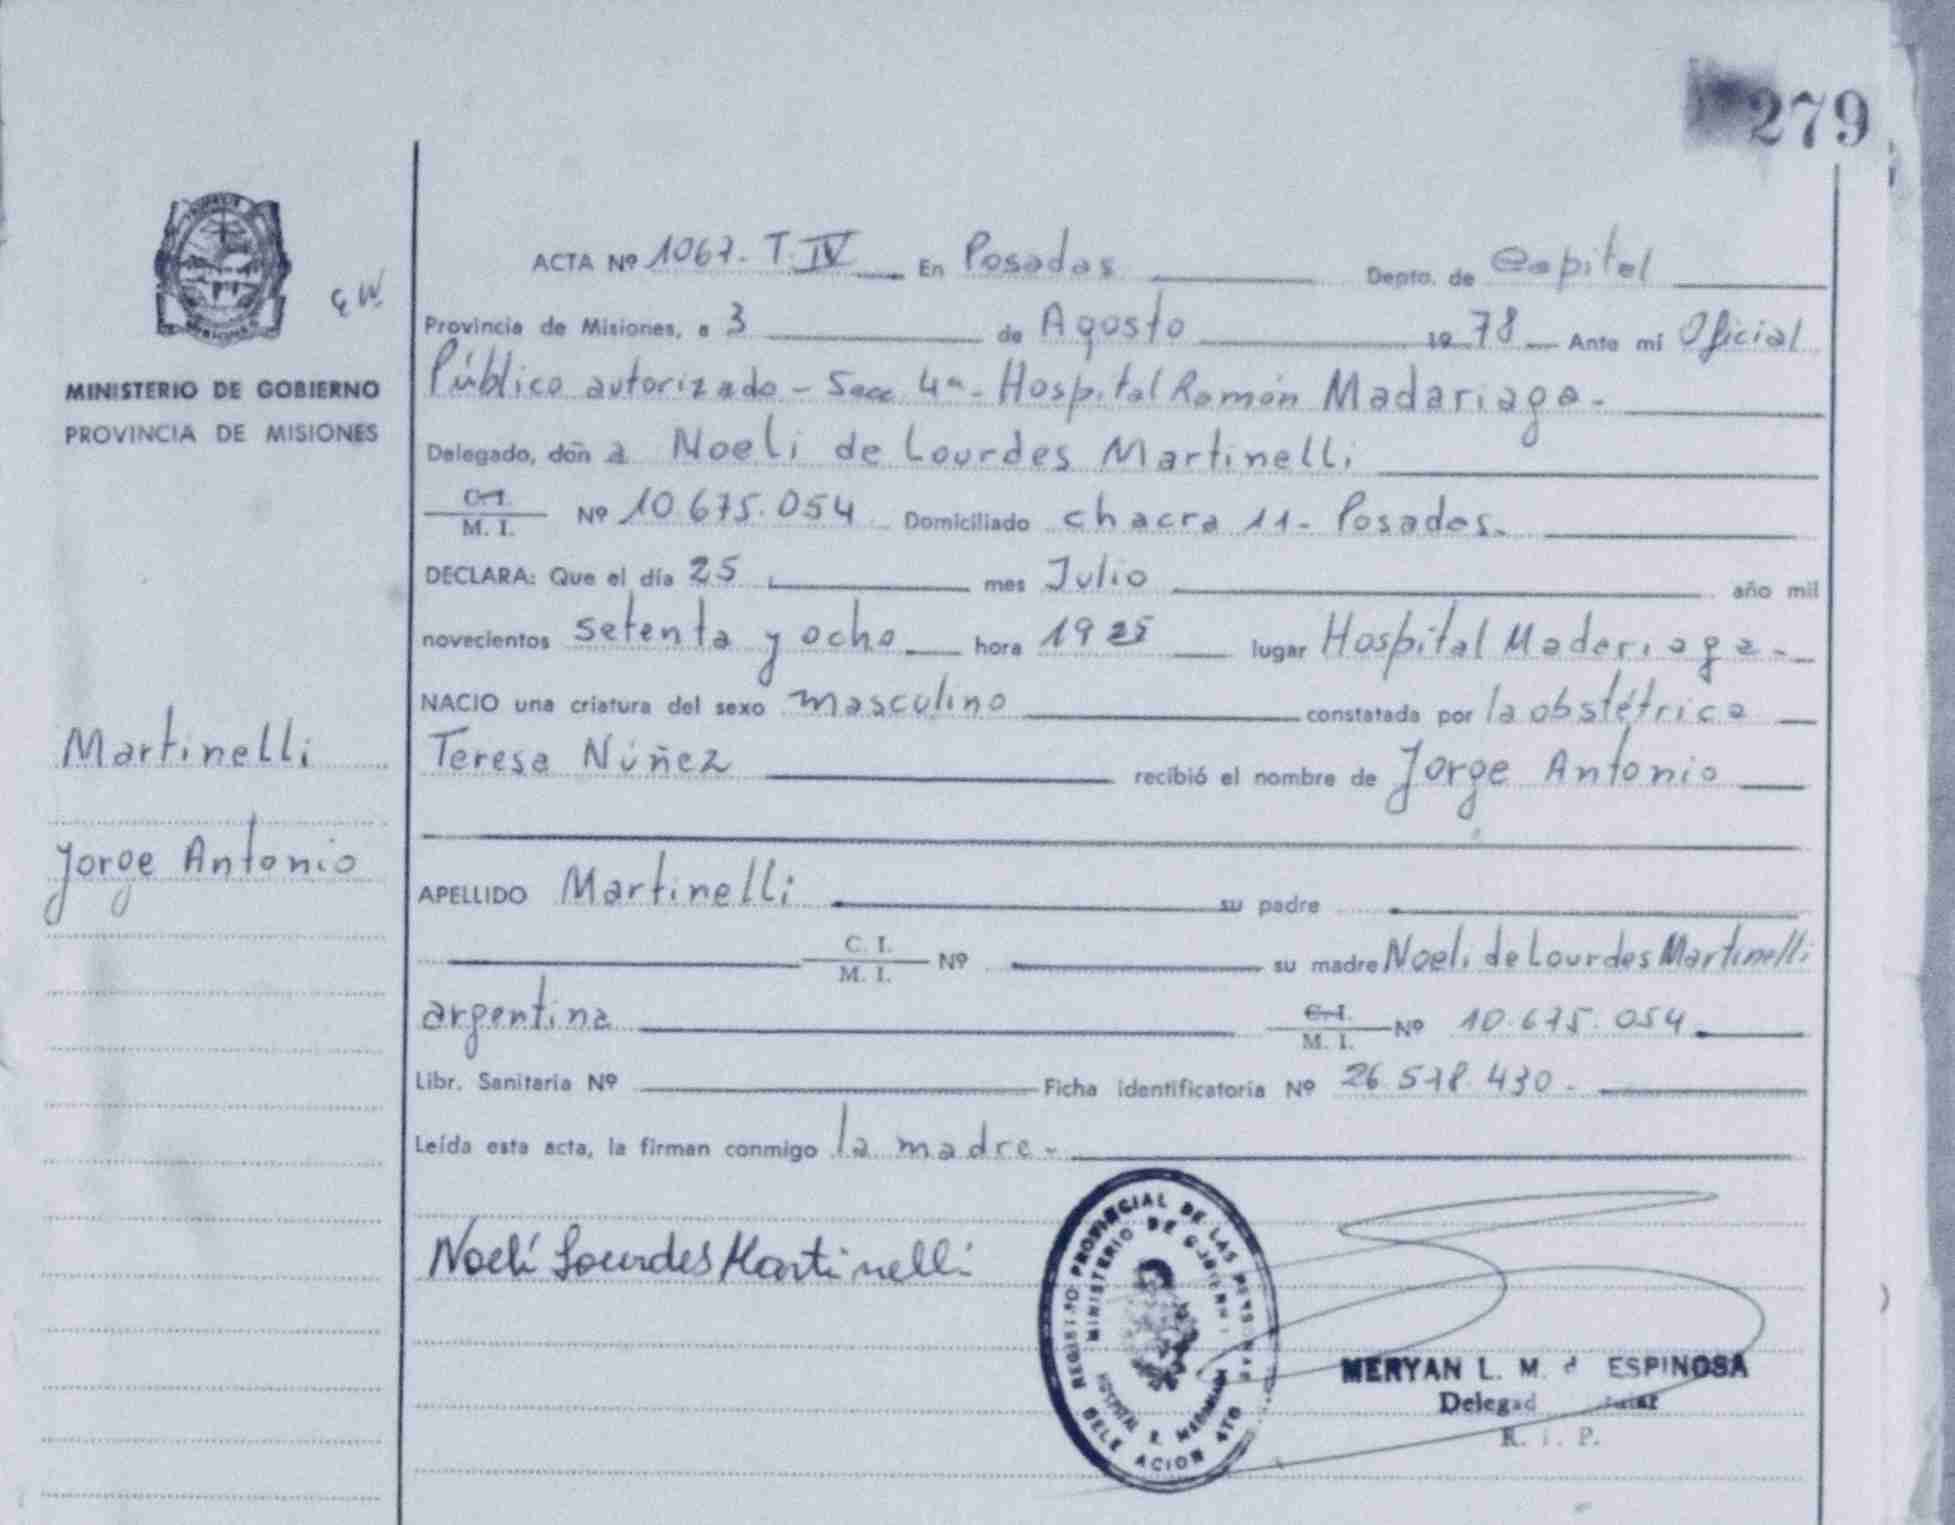 279
ACTA Nº 1067. T. IV En Posadas Depto. de Capital
Provincia de Misiones, a 3 de Agosto 19 78 Ante mi Oficial
MINISTERIO DE GOBIERNO
PROVINCIA DE MISIONES
Público autorizado - Secc 4ª - Hospital Ramón Madariaga -
Delegado, doñ a Noeli de Lourdes Martinelli
C. I.
M. I. Nº 10.675.054 Domiciliado chacra 11 - Posadas -
DECLARA: Que el día 25 mes Julio año mil
novecientos setenta y ocho hora 1925 lugar Hospital Madariaga -
NACIO una criatura del sexo masculino constatada por la obstétrica
Martinelli
Teresa Núñez recibió el nombre de Jorge Antonio
Jorge Antonio
APELLIDO Martinelli su padre
C. I.
M. I. Nº su madre Noeli de Lourdes Martinelli
argentina C. I.
M. I. Nº 10.675.054
Libr. Sanitaria Nº Ficha identificatoria Nº 26.578.430 -
Leída esta acta, la firman conmigo la madre -
Noelí Lourdes Martinelli
REGISTRO PROVINCIAL DE LAS PERSONAS
MINISTERIO DE GOBIERNO
HOSPITAL R. MADARIAGA
DELEGACION 4TO
MERYAN L. M. d ESPINOSA
Delegad
R. P.